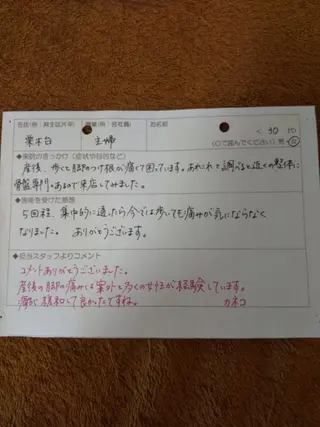 住所(例:麻生区片平) 職業(例:会社員) お名前
栗木台 主婦 30 代
(○で囲んでください) 男・女
◆来院のきっかけ(症状や目的など)
産後、歩くと脚のつけ根が痛くて困っています。あれこれと調べると近くの整体に
骨盤専門があるので来店してみました。
◆施術を受けた感想
5回程、集中的に通ったら今では歩いても痛みが気にならなく
なりました。 ありがとうございます。
◆担当スタッフよりコメント
コメントありがとうございました。
産後の脚の痛みは案外と多くの女性が経験しています。
痛みが緩和して良かったですね。 カネコ